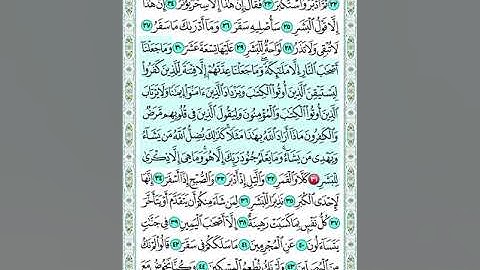 ٢٢ ثُمَّ أَدْبَرَ وَٱسْتَكْبَرَ ٢٣ فَقَالَ إِنْ هَٰذَآ إِلَّا سِحْرٌ يُؤْثَرُ ٢٤ إِنْ هَٰذَآ
إِلَّا قَوْلُ ٱلْبَشَرِ ٢٥ سَأُصْلِيهِ سَقَرَ ٢٦ وَمَآ أَدْرَىٰكَ مَا سَقَرُ ٢٧
لَا تُبْقِى وَلَا تَذَرُ ٢٨ لَوَّاحَةٌ لِّلْبَشَرِ ٢٩ عَلَيْهَا تِسْعَةَ عَشَرَ ٣٠ وَمَا جَعَلْنَآ
أَصْحَٰبَ ٱلنَّارِ إِلَّا مَلَٰٓئِكَةً وَمَا جَعَلْنَا عِدَّتَهُمْ إِلَّا فِتْنَةً لِّلَّذِينَ كَفَرُوا۟
لِيَسْتَيْقِنَ ٱلَّذِينَ أُوتُوا۟ ٱلْكِتَٰبَ وَيَزْدَادَ ٱلَّذِينَ ءَامَنُوٓا۟ إِيمَٰنًا وَلَا يَرْتَابَ
ٱلَّذِينَ أُوتُوا۟ ٱلْكِتَٰبَ وَٱلْمُؤْمِنُونَ وَلِيَقُولَ ٱلَّذِينَ فِى قُلُوبِهِم مَّرَضٌ
وَٱلْكَٰفِرُونَ مَاذَآ أَرَادَ ٱللَّهُ بِهَٰذَا مَثَلًا كَذَٰلِكَ يُضِلُّ ٱللَّهُ مَن يَشَآءُ
وَيَهْدِى مَن يَشَآءُ وَمَا يَعْلَمُ جُنُودَ رَبِّكَ إِلَّا هُوَ وَمَا هِىَ إِلَّا ذِكْرَىٰ
لِلْبَشَرِ ٣١ كَلَّا وَٱلْقَمَرِ ٣٢ وَٱلَّيْلِ إِذْ أَدْبَرَ ٣٣ وَٱلصُّبْحِ إِذَآ أَسْفَرَ ٣٤ إِنَّهَا
لَإِحْدَى ٱلْكُبَرِ ٣٥ نَذِيرًا لِّلْبَشَرِ ٣٦ لِمَن شَآءَ مِنكُمْ أَن يَتَقَدَّمَ أَوْ يَتَأَخَّرَ
٣٧ كُلُّ نَفْسٍۭ بِمَا كَسَبَتْ رَهِينَةٌ ٣٨ إِلَّآ أَصْحَٰبَ ٱلْيَمِينِ ٣٩ فِى جَنَّٰتٍ
يَتَسَآءَلُونَ ٤٠ عَنِ ٱلْمُجْرِمِينَ ٤١ مَا سَلَكَكُمْ فِى سَقَرَ ٤٢ قَالُوا۟ لَمْ نَكُ
مِنَ ٱلْمُصَلِّينَ ٤٣ وَلَمْ نَكُ نُطْعِمُ ٱلْمِسْكِينَ ٤٤ وَكُنَّا نَخُوضُ مَعَ